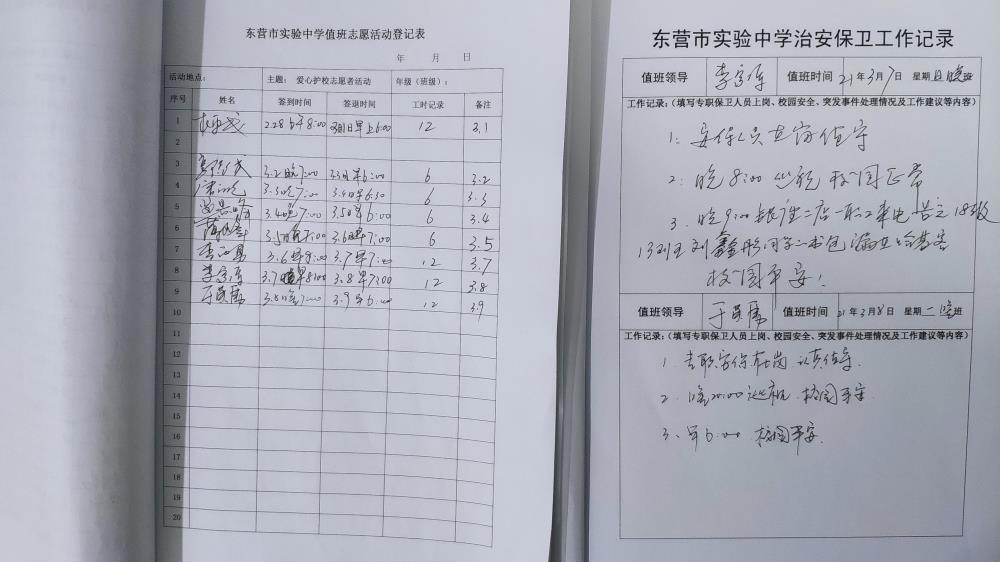 东营市实验中学值班志愿活动登记表
年 月 日
活动地点： 主题： 爱心护校志愿者活动 年级（班级）：
序号 姓名 签到时间 签退时间 工时记录 备注
1 2.28 8:00 早上6:00 12 3.1
2
3 3.2晚7:00 3.3日早6:00 6 3.2
4 3.3晚7:00 3.4日早6:30 6 3.3
5 3.4晚7:00 3.5日早6:00 6 3.4
6 3.5日晚7:00 3.6日早7:00 6 3.5
7 3.6早9:00 3.7早7:00 12 3.7
8 3.7早8:00 3.8早7:00 12 3.8
9 于 3.8晚7:00 3.9早6:00 12 3.9
10
11
12
13
14
15
16
17
18
19
20
东营市实验中学治安保卫工作记录
值班领导 值班时间 21年3月7日 星期日晚班
工作记录：（填写专职保卫人员上岗、校园安全、突发事件处理情况及工作建议等内容）
1、安保人员在岗值守
2、晚8:00巡视校园正常
3、晚9:00 二店一职工来电告之18级
13 刘鑫彤同学一书包
校园平安！
值班领导 于 值班时间 21年3月8日 星期一晚班
工作记录：（填写专职保卫人员上岗、校园安全、突发事件处理情况及工作建议等内容）
1、专职安保在岗 认真值守.
2、晚20:00巡视 校园平安
3、早6:00 校园平安